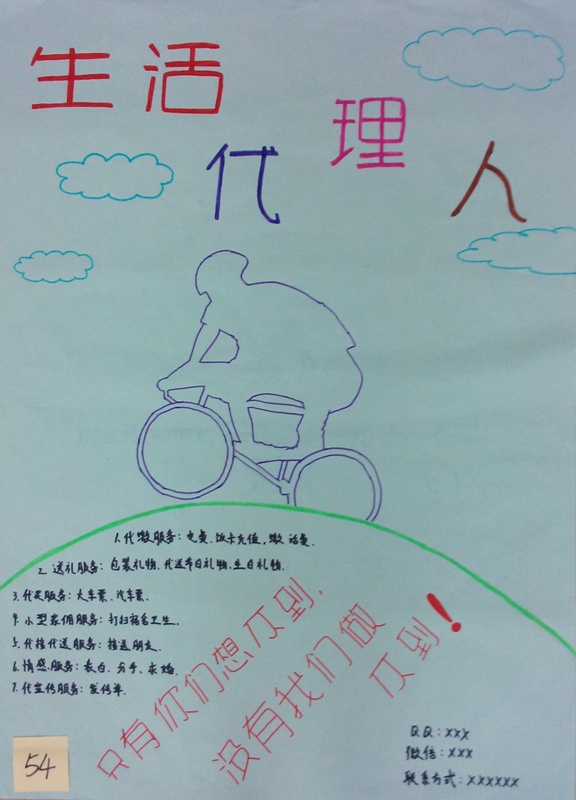 生活
代理人
1.代缴服务：电费、饭卡充值，缴话费.
2.送礼服务：包装礼物、代送节日礼物、生日礼物.
3.代买服务：火车票、汽车票.
4.小型家佣服务：打扫宿舍卫生.
5.代接代送服务：接送朋友.
6.情感服务：表白、分手、求婚.
7.代宣传服务：发传单.
只有你们想不到，
没有我们做不到！
QQ：xxx
微信：xxx
联系方式：xxxxxx
54